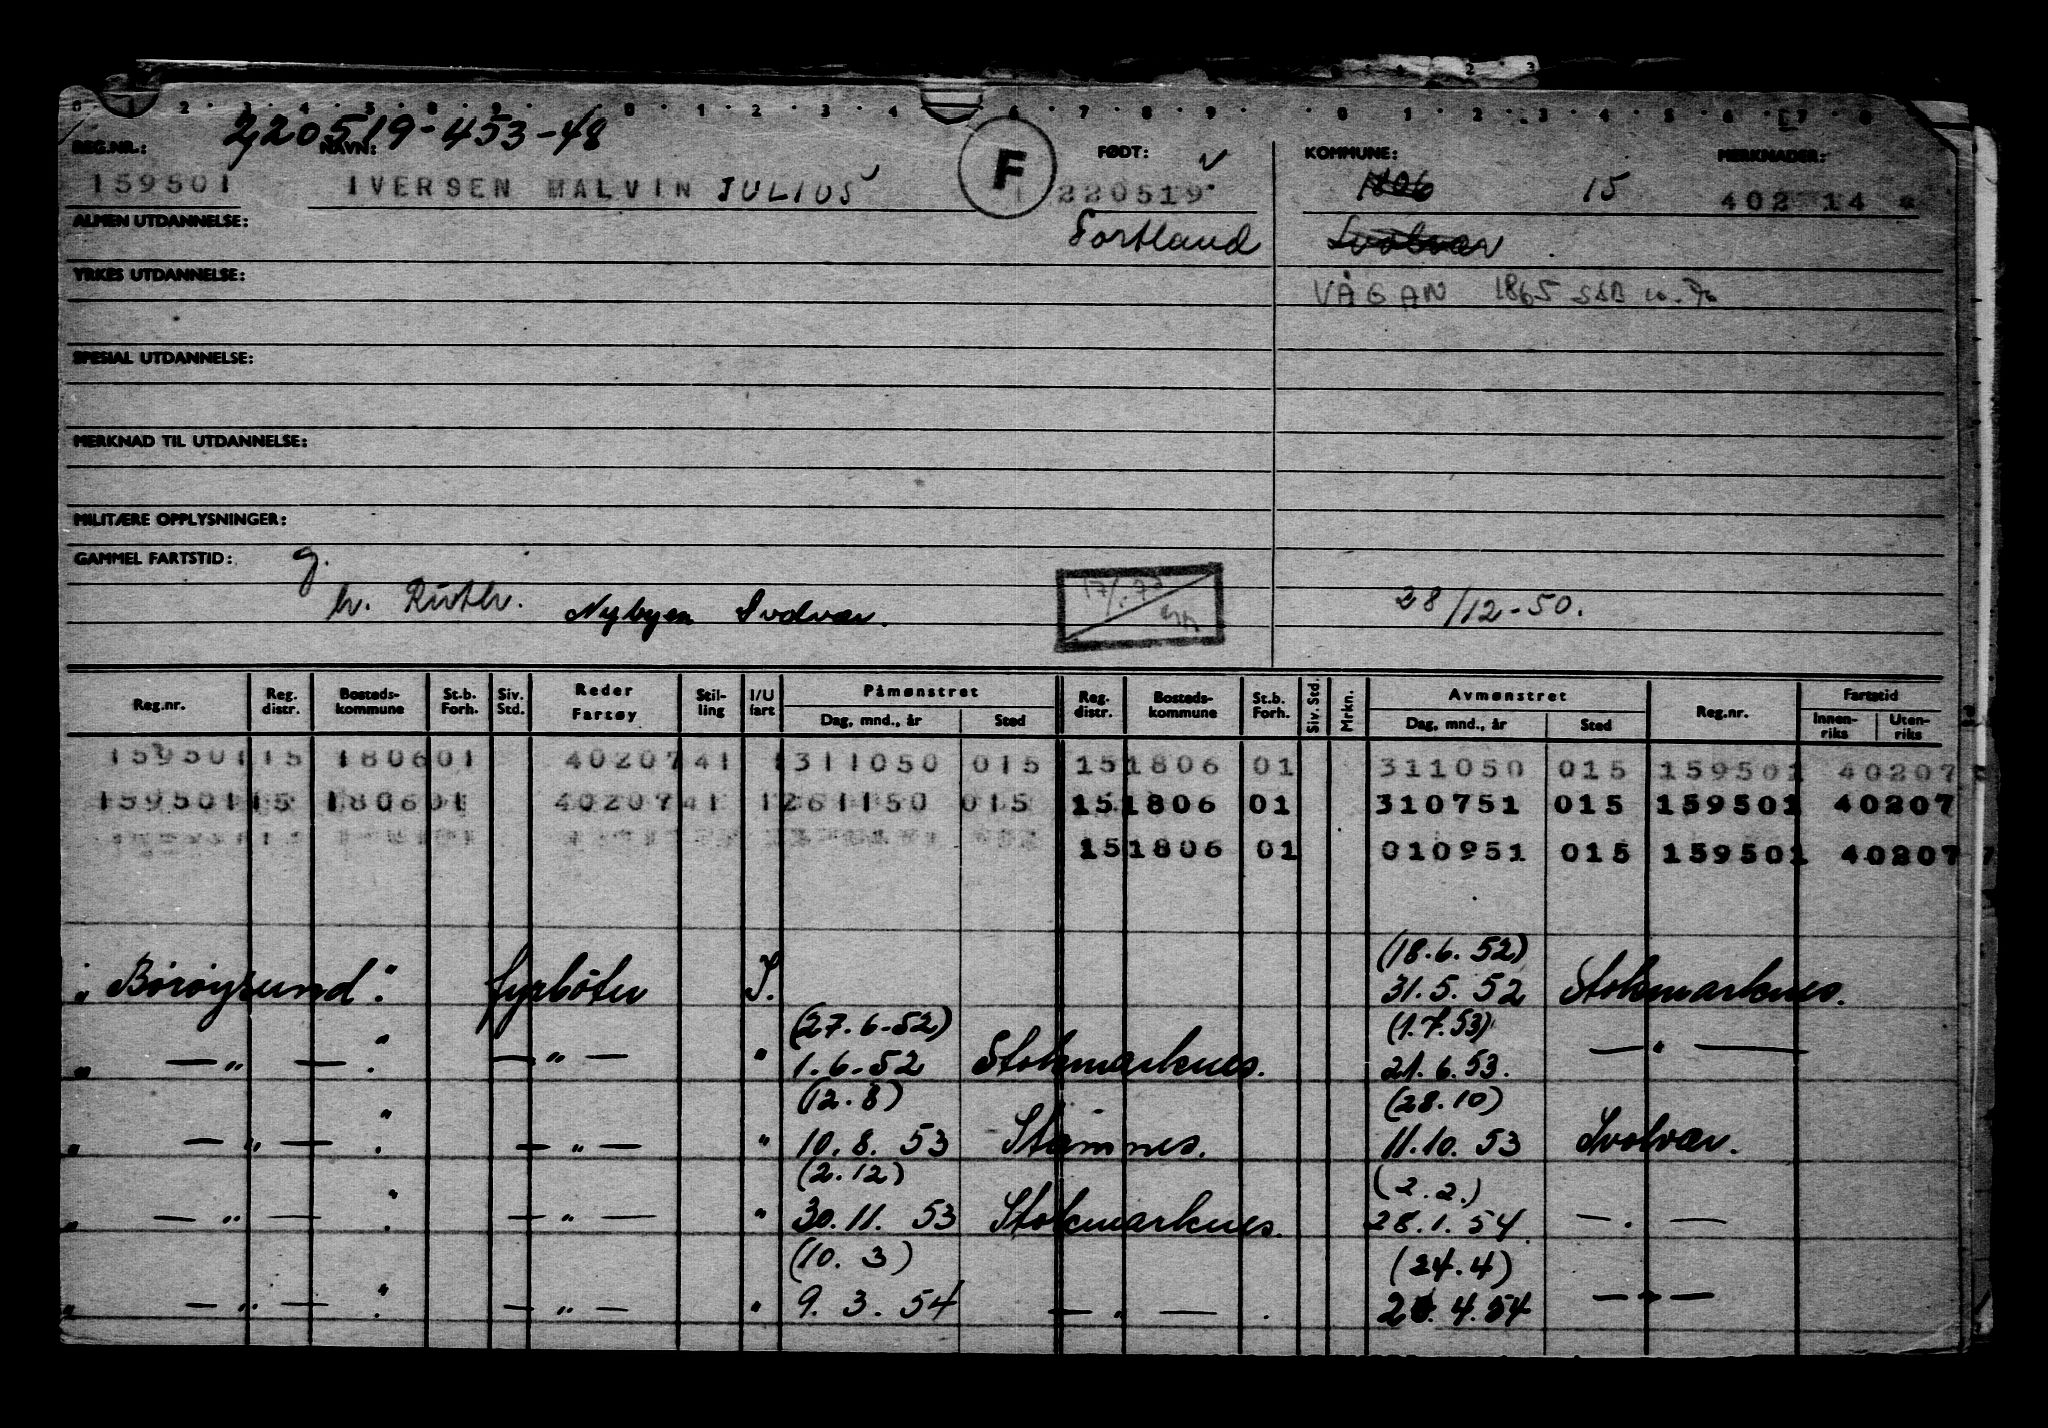 220519-453-48
REG.NR.: NAVN: F FØDT: KOMMUNE: MERKNADER:
159501 IVERSEN MALVIN JULIUS 220519 1806 15 402 14
ALMEN UTDANNELSE: Sortland Svolvær
YRKES UTDANNELSE: VÅGAN 1865
SPESIAL UTDANNELSE:
MERKNAD TIL UTDANNELSE:
MILITÆRE OPPLYSNINGER:
GAMMEL FARTSTID: g.
h. Ruth. Nybyen Svolvær. 28/12-50.
Reg.nr. Reg. distr. Bosteds- kommune St.b. Forh. Siv. Std. Reder Fartøy Stil- ling I/U fart Påmønstret Dag, mnd., år Sted Reg. distr. Bosteds- kommune St.b. Forh. Siv. Std. Mrkn. Avmønstret Dag, mnd., år Sted Reg.nr. Fartstid Innen- riks Uten- riks
159501 15 1806 01 40207 41 1 311050 015 15 1806 01 311050 015 159501 40207
159501 15 1806 01 40207 41 1 261150 015 15 1806 01 310751 015 159501 40207
15 1806 01 010951 015 159501 40207
(18.6.52)
"Børøysund." fyrbøter I. 31.5.52 Stokmarknes.
(27.6-52) (1.7.53)
" — " — " — " — " 1.6-52 Stokmarknes. 21.6.53. — " —
(12.8) (28.10)
" — " — " — " — " 10.8.53 Stamnes. 11.10.53 Svolvær.
(2.12) (2.2.)
" — " — " — " — " 30.11.53 Stokmarknes. 28.1.54. — " —
(10.3) (24.4)
" — " — " — " — " 9.3.54 — " — . 4.54 — " —